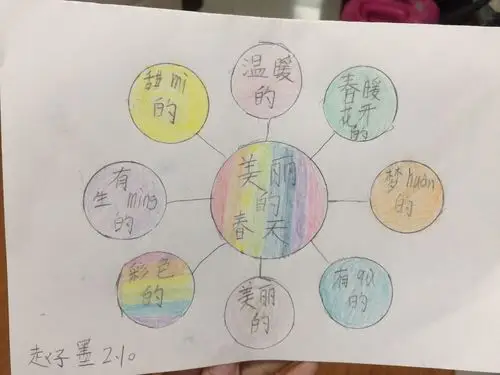 温暖
的
春暖
花开
的
梦huàn
的
有qù
的
美丽
的
彩色
的
有
生ming
的
甜mì
的
美丽
的
春天
赵子墨 2.10